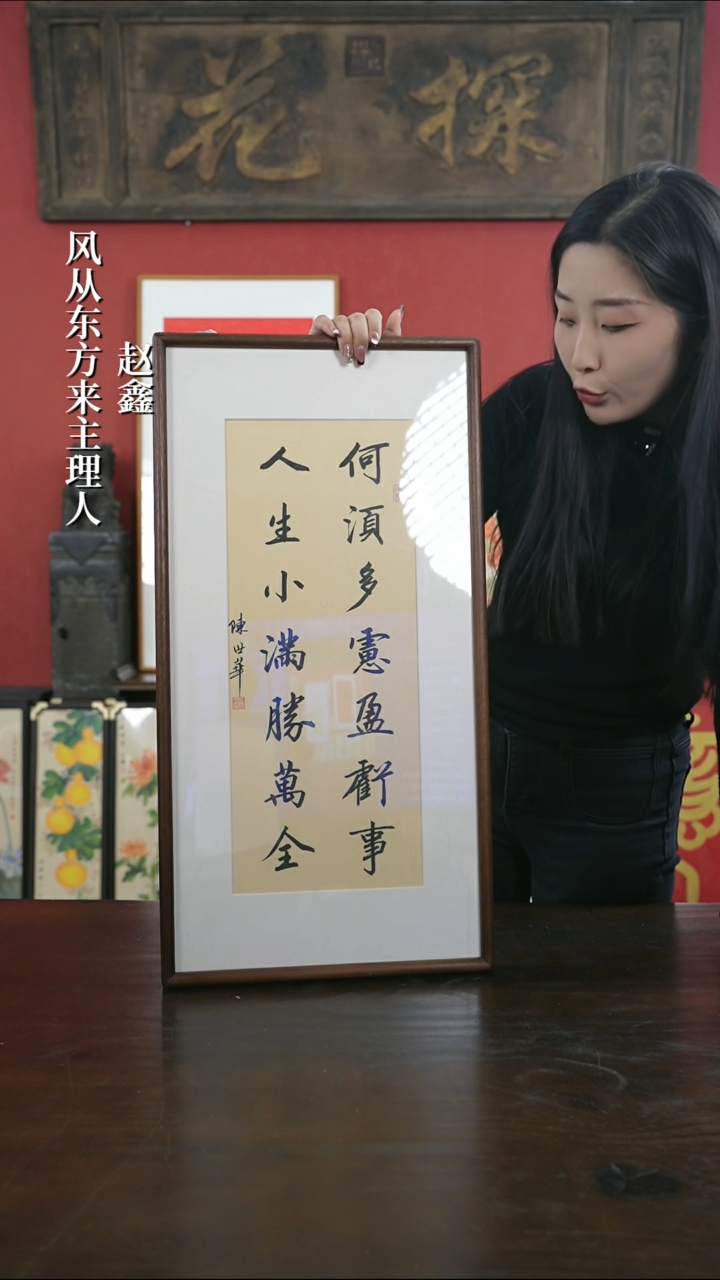 探花
风从东方来主理人
赵鑫
何須多慮盈虧事
人生小滿勝萬全
陳世華